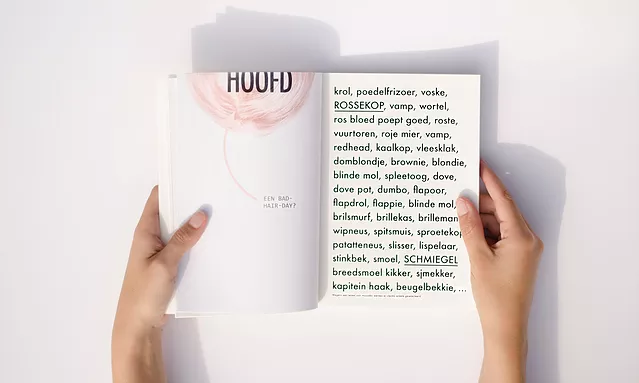 HOOFD
EEN BAD-
HAIR-DAY?
krol, poedelfrizoer, voske,
ROSSEKOP, vamp, wortel,
ros bloed poept goed, roste,
vuurtoren, roje mier, vamp,
redhead, kaalkop, vleesklak,
domblondje, brownie, blondie,
blinde mol, spleetoog, dove,
dove pot, dumbo, flapoor,
flapdrol, flappie, blinde mol,
brilsmurf, brillekas, brilleman,
wipneus, spitsmuis, sproetekop,
patatteneus, slisser, lispelaar,
stinkbek, smoel, SCHMIEGEL
breedsmoel kikker, sjmekker,
kapitein haak, beugelbekkie, ...